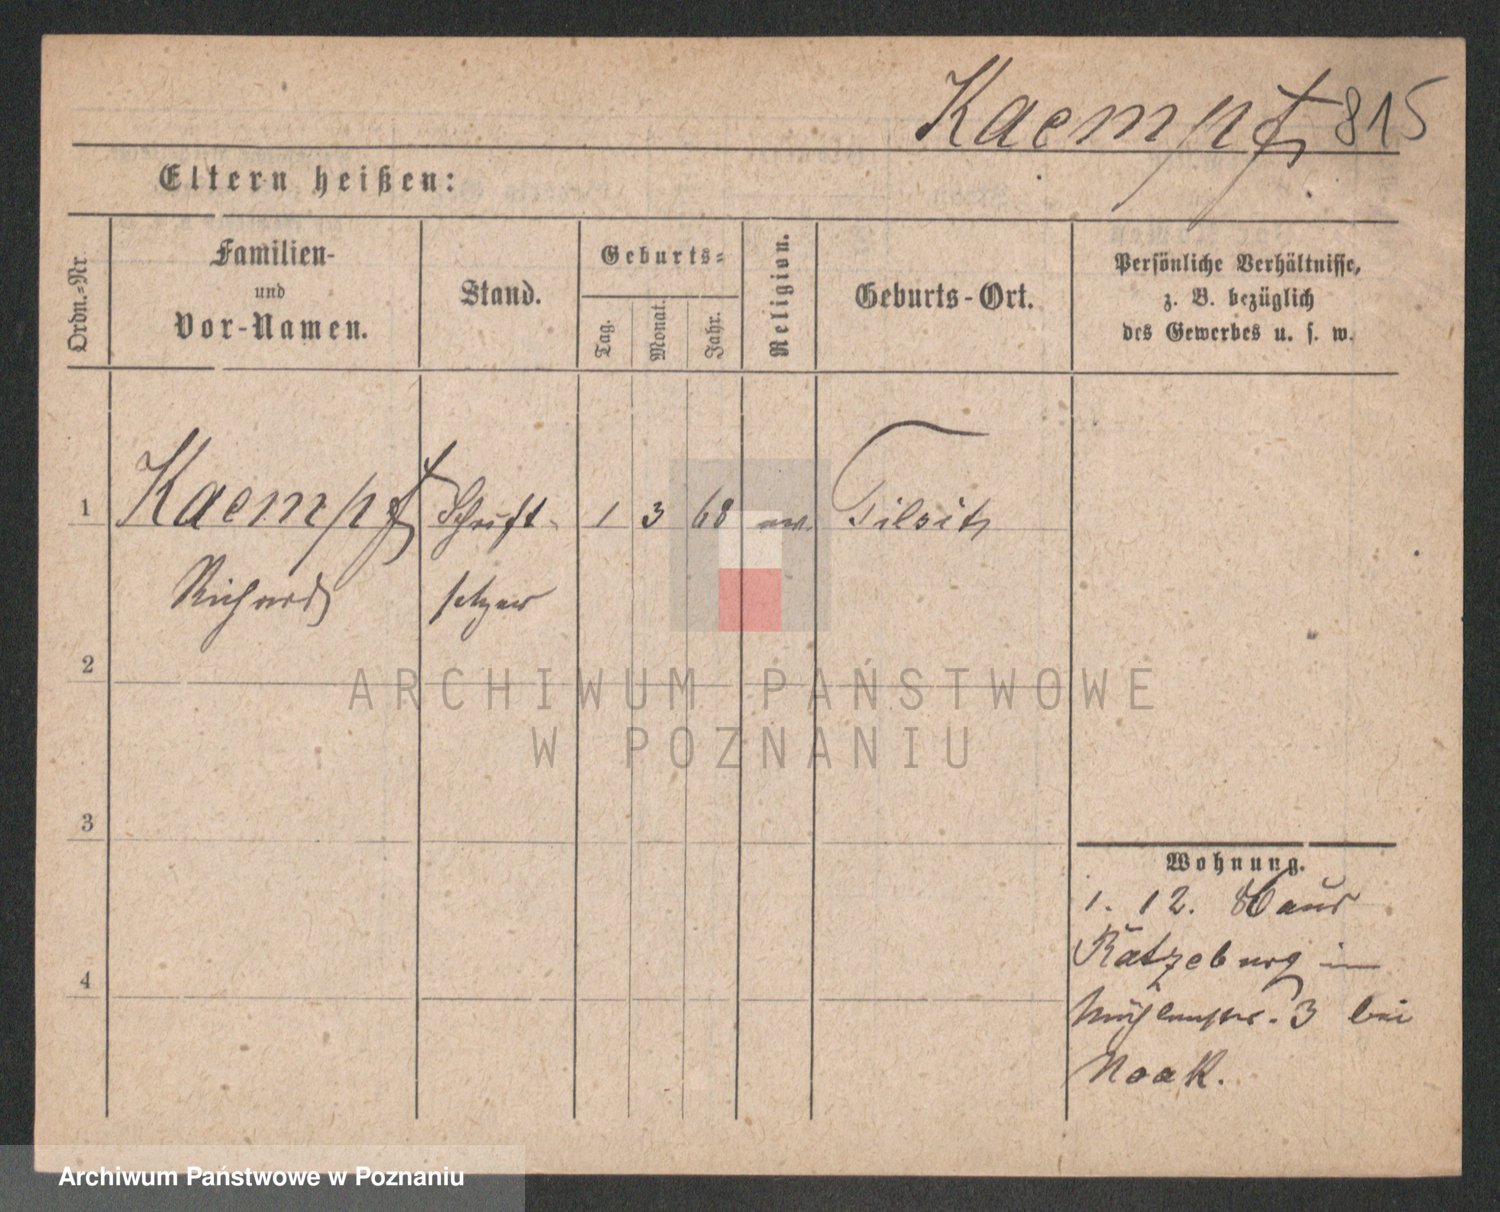 Kaempf 815
Eltern heißen:
Ordn.-Nr.
Familien-
und
Vor-Namen.
Stand.
Geburts-
Tag.
Monat.
Jahr.
Religion.
Geburts-Ort.
Persönliche Verhältnisse,
z. B. bezüglich
des Gewerbes u. s. w.
1 Kaempf Schrift- 1 3 68 ev. Tilsit
Richard setzer
2
3
4
Wohnung.
1. 12. aus
Ratzeburg in
Mühlenstr. 3 bei
Noak.
ARCHIWUM PAŃSTWOWE
W POZNANIU
Archiwum Państwowe w Poznaniu